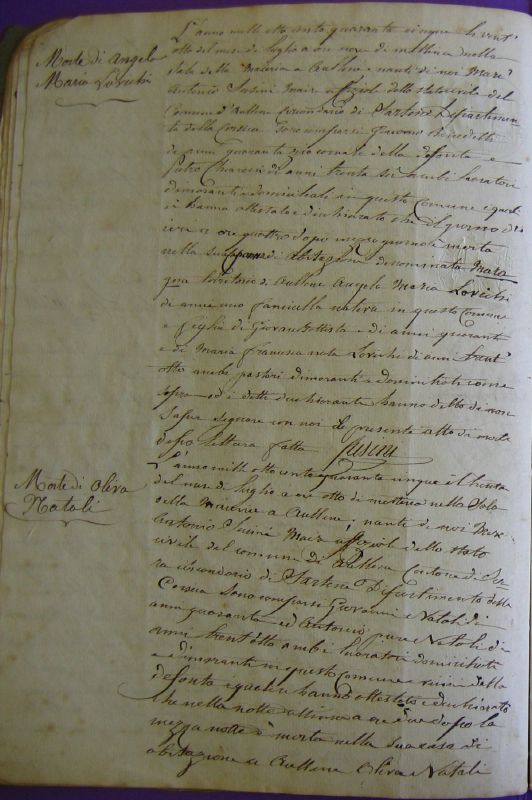 Morte di Angelo
Maria Lovichi
L'anno mille otto cento quaranta cinque li vent'
otto del mese di luglio a ore nove di mattina nella
sala della Maieria a Aullene nanti di noi Marc'
Antonio Susini Maire uffiziale dello stato civile del
Comune d'Aullene circondario di Sartene Dipartimen
to della Corsica sono comparsi Giacomo
di anni quaranta della defonta e
Pietro di anni trenta sei ambi lavoratori
dimoranti e domiciliati in questo Comune i quali
ci hanno attestato e dichiarato che il giorno di
ieri a ore quattro dopo mezzo giorno è morta
nella sua di abitazione denominata
territorio di Aullene Angela Maria Lovichi
di anni uno fanciulla nativa in questo Comune
e figlia di Giovan Battista di anni quaranta
e di Maria Francesca nata Lovichi di anni trent'
otto ambi pastori dimoranti e domiciliati come
sopra ed i detti dichiaranti hanno detto di non
saper segnare con noi il presente atto di morte
dopo lettura fatta Susini
Morte di Oliva
Natali
L'anno mill'otto cento quaranta cinque il trenta
del mese di luglio a ore otto di mattina nella Sala
della Maieria a Aullene, nante di noi Marc'
Antonio Susini Maire uffiziale dello stato
civile del comune di Aullene Cantone di Ser
ra circondario di Sartene Dipartimento della
Corsica sono comparsi Giovanni Natali di
anni quaranta ed Antonio pure Natali di
anni trent'otto ambi lavoratori domiciliati
e dimoranti in questo comune vicini della
defonta i quali ci hanno attestato e dichiarato
che nella notte ultima a ore due dopo la
mezza notte è morta nella sua casa di
abitazione a Aullene Oliva Natali